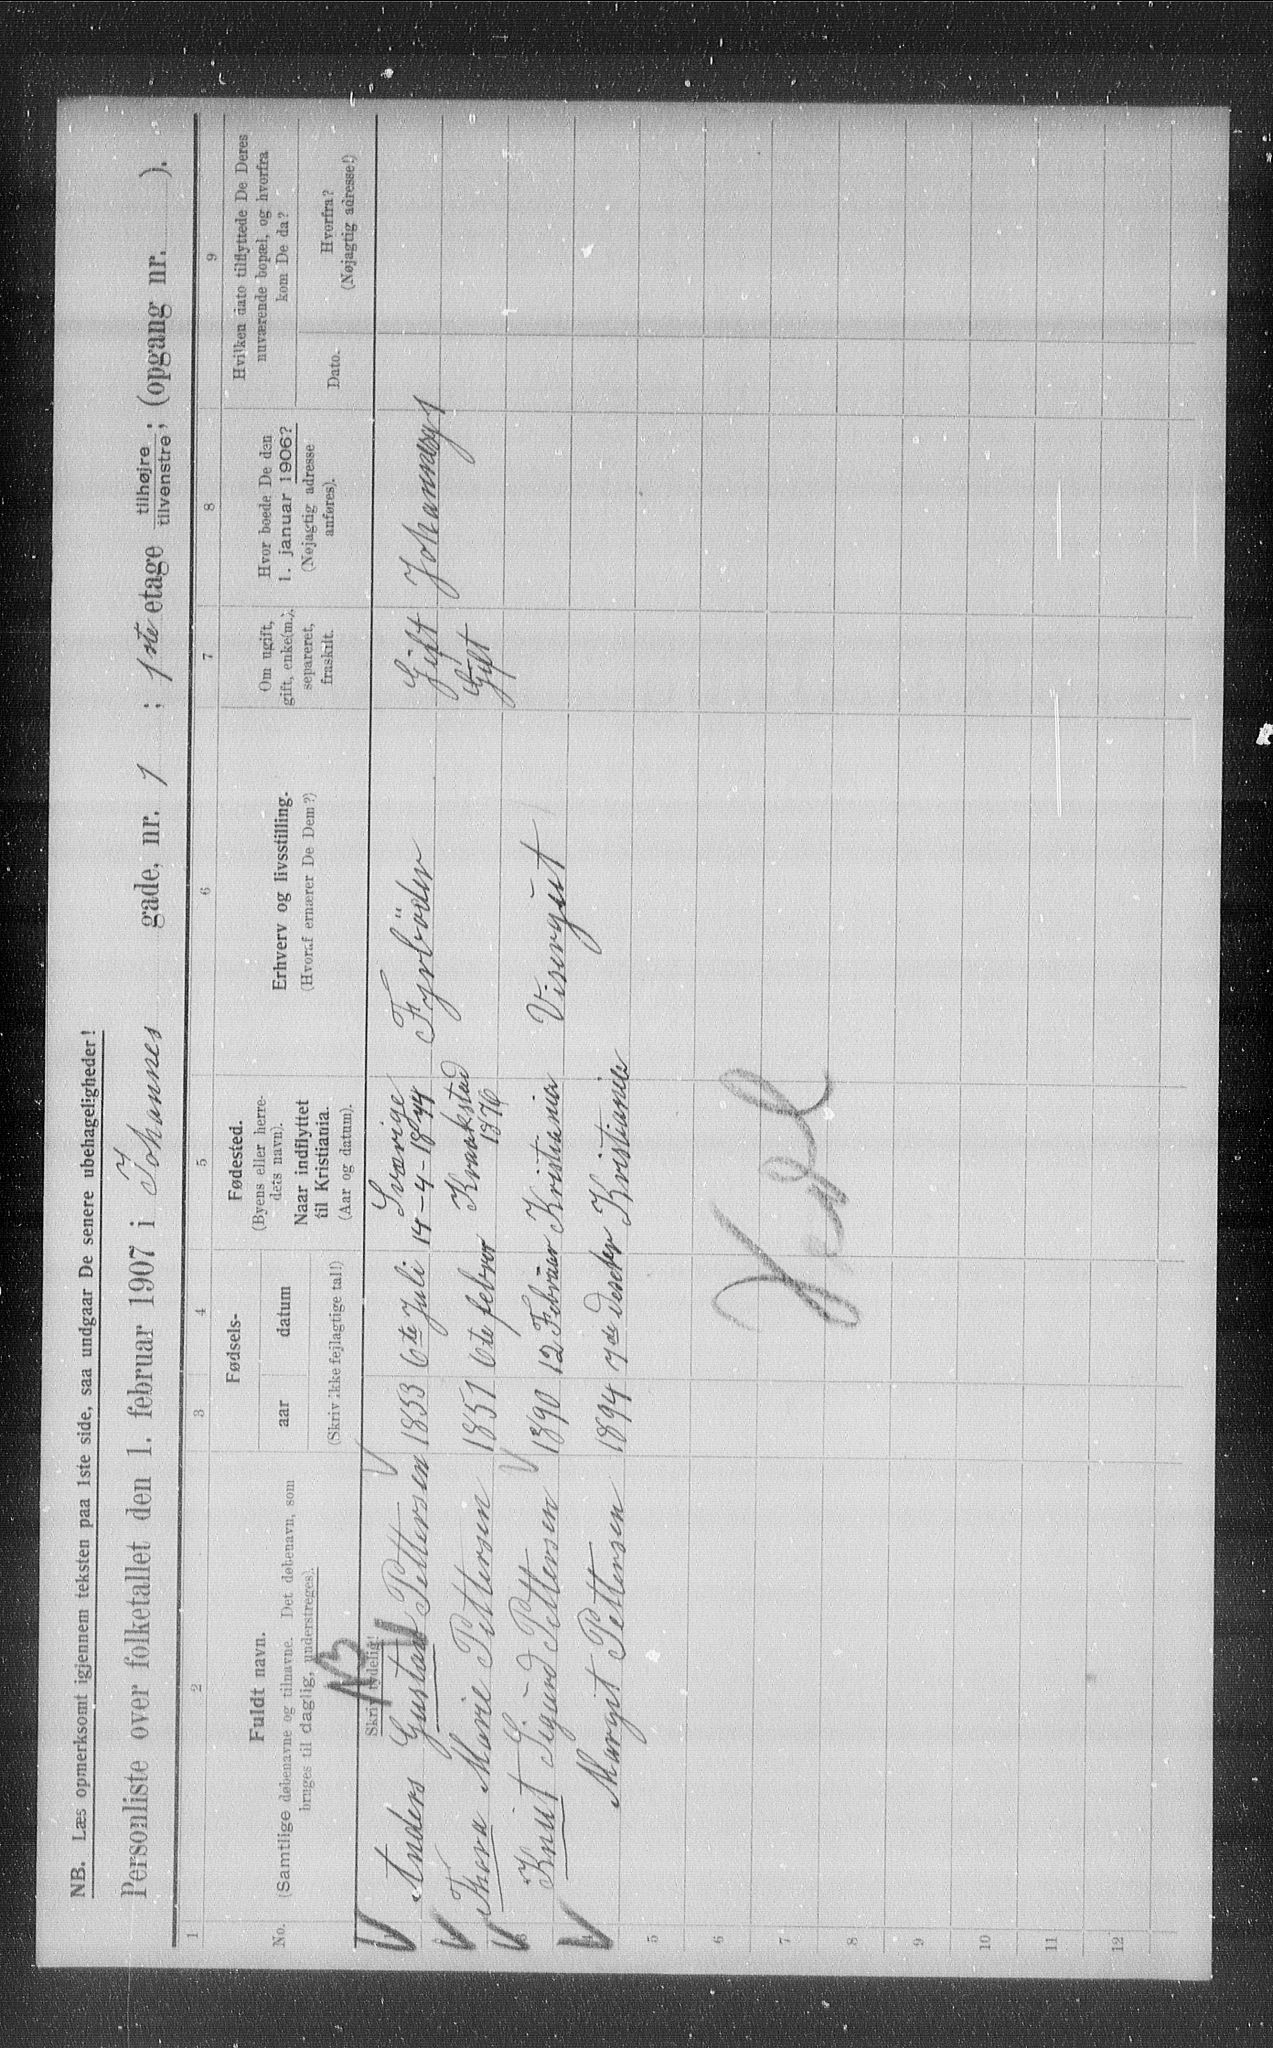 NB. Læs opmerksomt igjennem teksten paa 1ste side, saa undgaar De senere ubehageligheder!
Personliste over folketallet den 1. februar 1907 i Johannes gade, nr. 1 ; 1ste etage tilhøjre tilvenstre; (opgang nr. ).
1 2 3 4 5 6 7 8 9
No.
Fuldt navn.
(Samtlige døbenavne og tilnavne. Det døbenavn, som
bruges til daglig, understreges).
Skriv tydelig!
NB
Fødsels-
aar datum
(Skriv ikke fejlagtige tal!)
Fødested.
(Byens eller herre-
dets navn).
Naar indflyttet
til Kristiania.
(Aar og datum).
Erhverv og livsstilling.
(Hvoraf ernærer De Dem?)
Om ugift,
gift, enke(m.),
separeret,
fraskilt.
Hvor boede De den
1. januar 1906?
(Nøjagtig adresse
anføres).
Hvilken dato tilflyttede De Deres
nuværende bopæl, og hvorfra
kom De da?
Dato.
Hvorfra?
(Nøjagtig adresse!)
Anders Gustav Pettersen 1853 6te Juli Sværige 14-4-1874 Fyrböder Gift Johannesg 1
Thora Marie Pettersen 1851 6te febror Kraakstad 1876 Gift
3 Knut Sigurd Pettersen 1890 12 Februar Kristiania Visergut
4 Margit Pettersen 1894 7de Desebr Kristiania
5
6
7
8
9
10
11
12